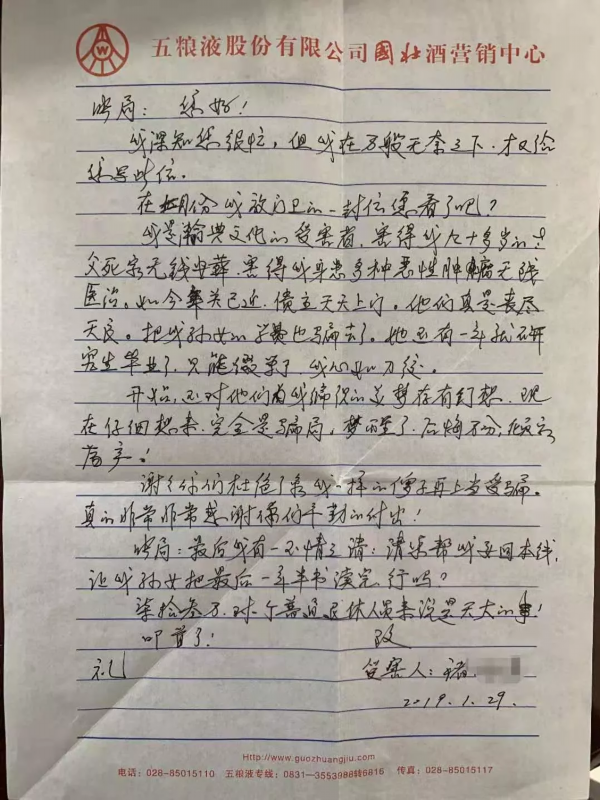 五粮液股份有限公司國壮酒营销中心
昤局：您好！
我深知您很忙，但我在万般无奈之下，才又给
您写此信。
在 月份我放门卫的一封信您看了吧？
我是瀚典文化的受害者，害得我九十多岁的
父死家无钱安葬，害得我身患多种恶性肿瘤无钱
医治。如今年关已近，债主天天上门。他们真是丧尽
天良。把我孙女的学费也骗去了。她还有一年就研
究生毕业了，只能缀学了，我心如刀绞。
开始，还对他们为我编织的美梦存有幻想，现
在仔细想来，完全是骗局，梦醒了，后悔不及，倾家
荡产！
谢谢你们杜绝了象我一样的傻子再上当受骗。
真的非常非常感谢你们辛勤的付出！
局：最后我有一不情之请：请您帮我要回本钱，
让我孙女把最后一年半书读完行吗？
柒拾叁万，对个普通退休人员来说是天大的事！
叩首了！ 致
礼 受害人：褚
2019.1.29.
Http://www.guozhuangjiu.com
电话：028-85015110 五粮液专线：0831-3553988转6816 传真：028-85015117